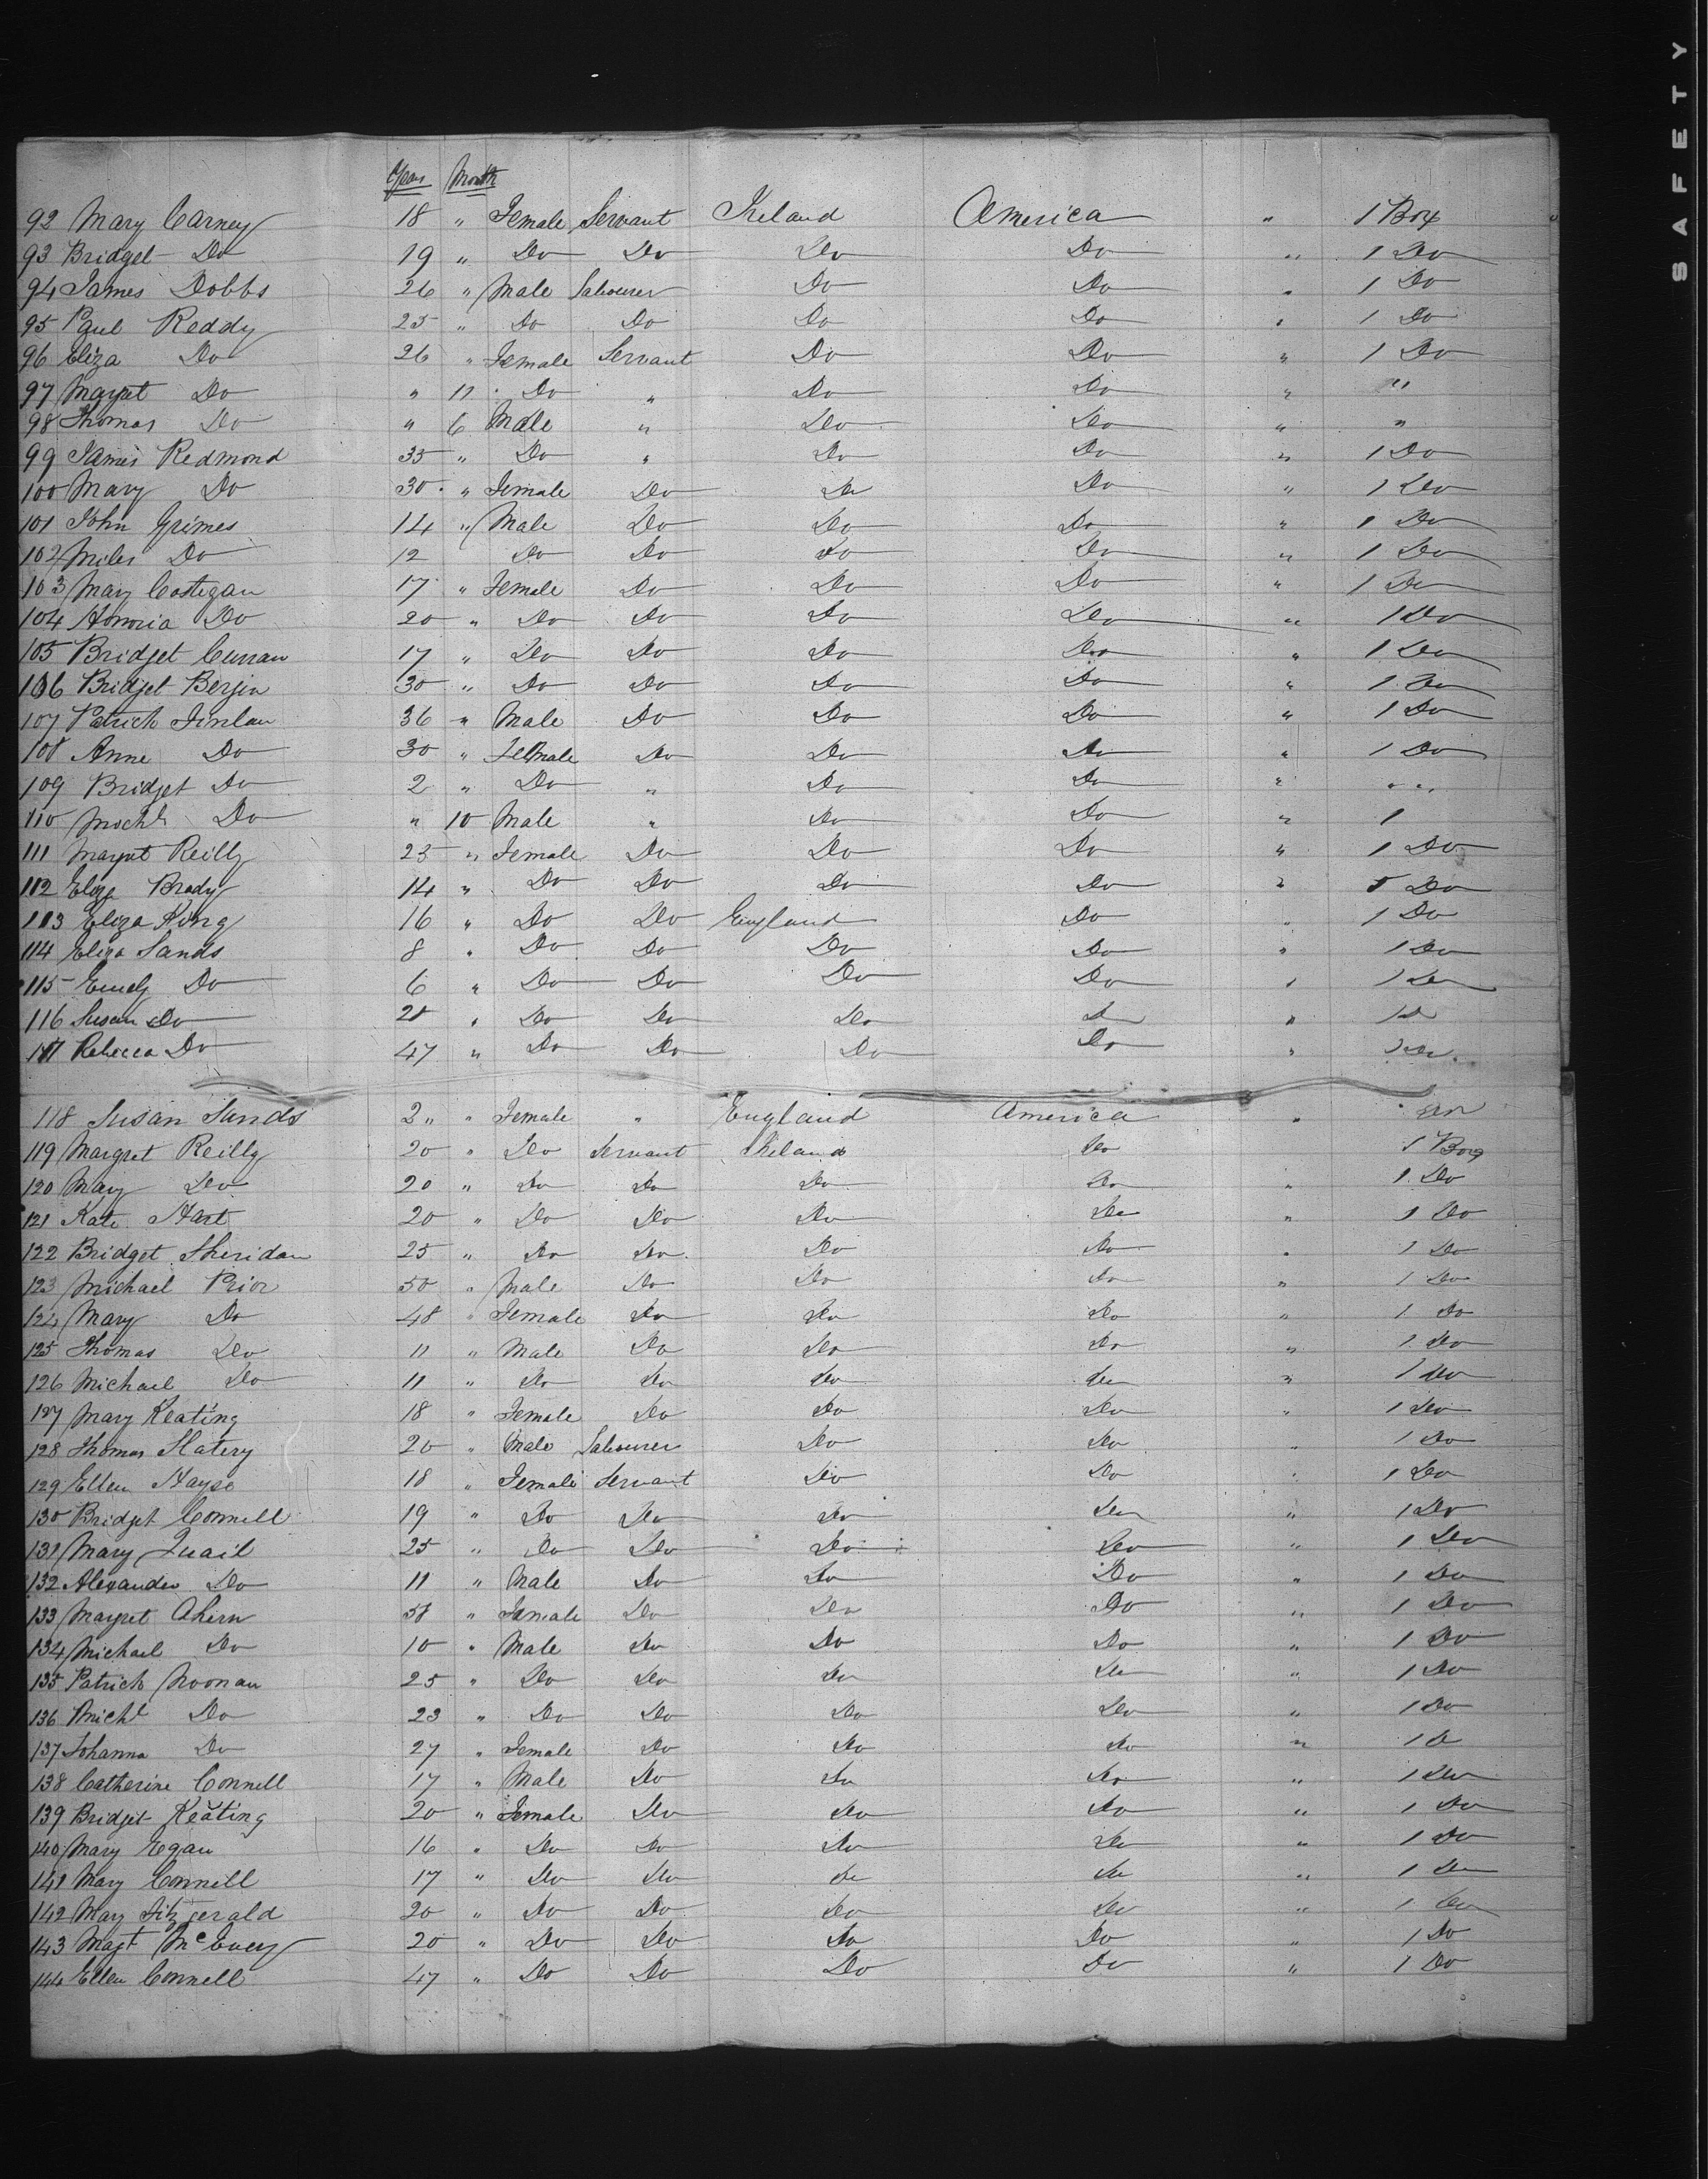 SAFETY
Years Month
92 Mary Carney 18 " Female Servant Ireland America " 1 Box
93 Bridget Do 19 " Do Do Do Do " 1 Do
94 James Dobbs 26 " Male Labourer Do Do " 1 Do
95 Paul Reddy 25 " Do Do Do Do " 1 Do
96 Eliza Do 26 " Female Servant Do Do " 1 Do
97 Margret Do " 11 Do " Do Do " "
98 Thomas Do " 6 Male " Do Do " "
99 James Redmond 35 " Do " Do Do " 1 Do
100 Mary Do 30 " Female Do Do Do " 1 Do
101 John Grimes 14 " Male Do Do Do " 1 Do
102 Miles Do 12 Do Do Do Do " 1 Do
103 Mary Costegan 17 " Female Do Do Do " 1 Do
104 Honoria Do 20 " Do Do Do Do " 1 Do
105 Bridget Curran 17 " Do Do Do Do " 1 Do
106 Bridget Bergin 30 " Do Do Do Do " 1 Do
107 Patrick Finlan 36 " Male Do Do Do " 1 Do
108 Anne Do 30 " Female Do Do Do " 1 Do
109 Bridget Do 2 " Do " Do Do " " "
110 Michl Do " 10 Male " Do Do " 1
111 Margret Reilly 25 " Female Do Do Do " 1 Do
112 Eliza Brady 14 " Do Do Do Do " Do
113 Eliza King 16 " Do Do England Do " 1 Do
114 Eliza Sands 8 " Do Do Do Do " 1 Do
115 Emely Do 6 " Do Do Do Do " 1 Do
116 Susan Do " Do Do Do Do " 1 Do
117 Rebecca Do 47 " Do Do Do Do " Do
118 Susan Sands 2 " " Female " England America "
119 Margret Reilly 20 " Do Servant Ireland Do 1 Box
120 Mary Do 20 " Do Do Do Do " 1 Do
121 Kate Hart 20 " Do Do Do Do " 1 Do
122 Bridget Sheridan 25 " Do Do Do Do " 1 Do
123 Michael Prior 50 " Male Do Do Do " 1 Do
124 Mary Do 48 " Female Do Do Do " 1 Do
125 Thomas Do 11 " Male Do Do Do " 1 Do
126 Michael Do 11 " Do Do Do Do " 1 Do
127 Mary Keating 18 " Female Do Do Do " 1 Do
128 Thomas Slatery 20 " Male Labourer Do Do " 1 Do
129 Ellen Hayse 18 " Female Servant Do Do " 1 Do
130 Bridget Connell 19 " Do Do Do Do " 1 Do
131 Mary Quail 25 " Do Do Do Do " 1 Do
132 Alexander Do 11 " Male Do Do Do " 1 Do
133 Margret Ahern " Female Do Do Do " 1 Do
134 Michael Do 10 " Male Do Do Do " 1 Do
135 Patrick Noonan 25 " Do Do Do Do " 1 Do
136 Michl Do 23 " Do Do Do Do " 1 Do
137 Johanna Do 27 " Female Do Do Do " 1 Do
138 Catherine Connell 17 " Male Do Do Do " 1 Do
139 Bridget Keating 20 " Female Do Do Do " 1 Do
140 Mary Egan 16 " Do Do Do Do " 1 Do
141 Mary Connell 17 " Do Do Do Do " 1 Do
142 Mary Fitzgerald 20 " Do Do Do Do " 1 Do
143 Magt 20 " Do Do Do Do " 1 Do
144 Ellen Connell 47 " Do Do Do Do " 1 Do